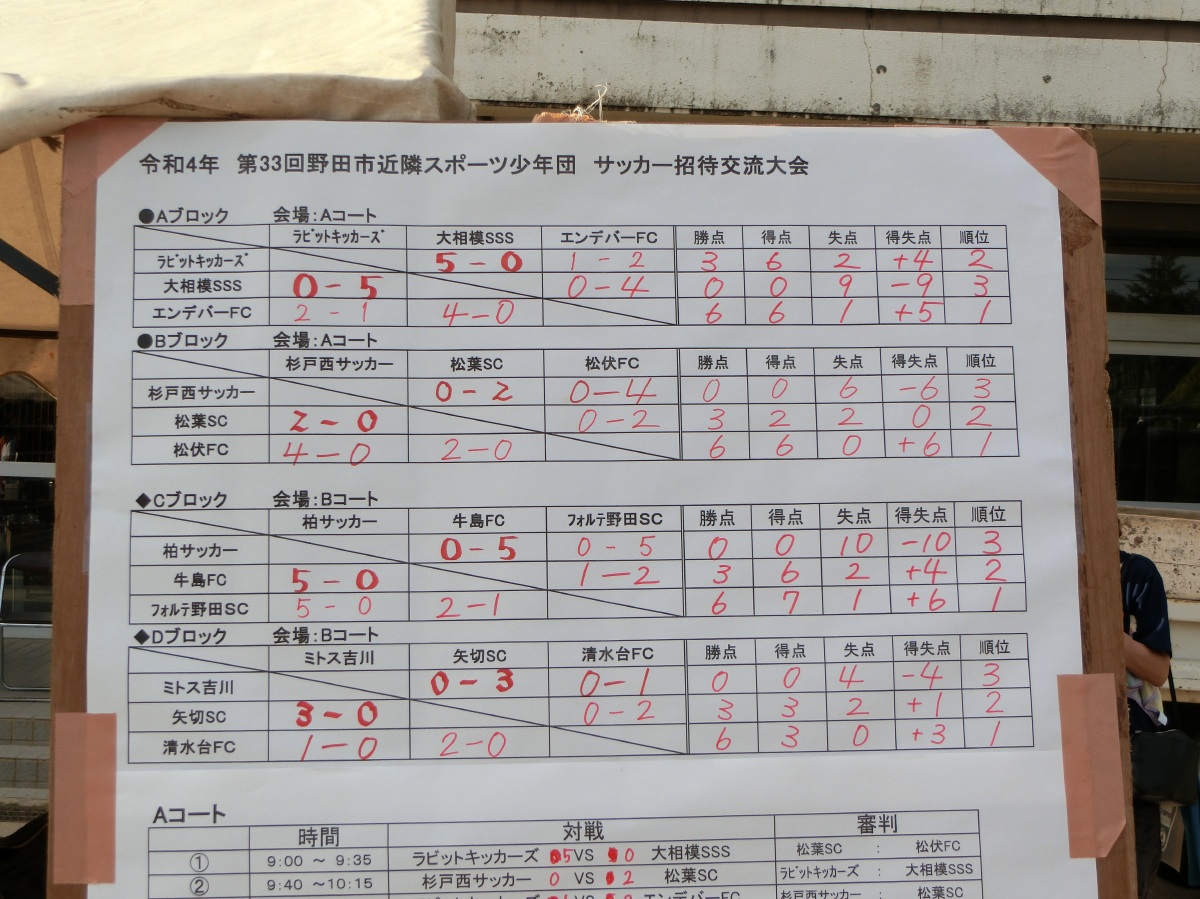 令和4年 第33回野田市近隣スポーツ少年団 サッカー招待交流大会
●Aブロック 会場:Aコート
ラビットキッカーズ 大相模SSS エンデバーFC 勝点 得点 失点 得失点 順位
ラビットキッカーズ 5-0 1-2 3 6 2 +4 2
大相模SSS 0-5 0-4 0 0 9 -9 3
エンデバーFC 2-1 4-0 6 6 1 +5 1
●Bブロック 会場:Aコート
杉戸西サッカー 松葉SC 松伏FC 勝点 得点 失点 得失点 順位
杉戸西サッカー 0-2 0-4 0 0 6 -6 3
松葉SC 2-0 0-2 3 2 2 0 2
松伏FC 4-0 2-0 6 6 0 +6 1
◆Cブロック 会場:Bコート
柏サッカー 牛島FC フォルテ野田SC 勝点 得点 失点 得失点 順位
柏サッカー 0-5 0-5 0 0 10 -10 3
牛島FC 5-0 1-2 3 6 2 +4 2
フォルテ野田SC 5-0 2-1 6 7 1 +6 1
◆Dブロック 会場:Bコート
ミトス吉川 矢切SC 清水台FC 勝点 得点 失点 得失点 順位
ミトス吉川 0-3 0-1 0 0 4 -4 3
矢切SC 3-0 0-2 3 3 2 +1 2
清水台FC 1-0 2-0 6 3 0 +3 1
Aコート
時間 対戦 審判
① 9:00 ~ 9:35 ラビットキッカーズ 5 VS 0 大相模SSS 松葉SC : 松伏FC
② 9:40 ~10:15 杉戸西サッカー 0 VS 2 松葉SC ラビットキッカーズ : 大相模SSS
エンデバーFC 杉戸西サッカー : 松葉SC